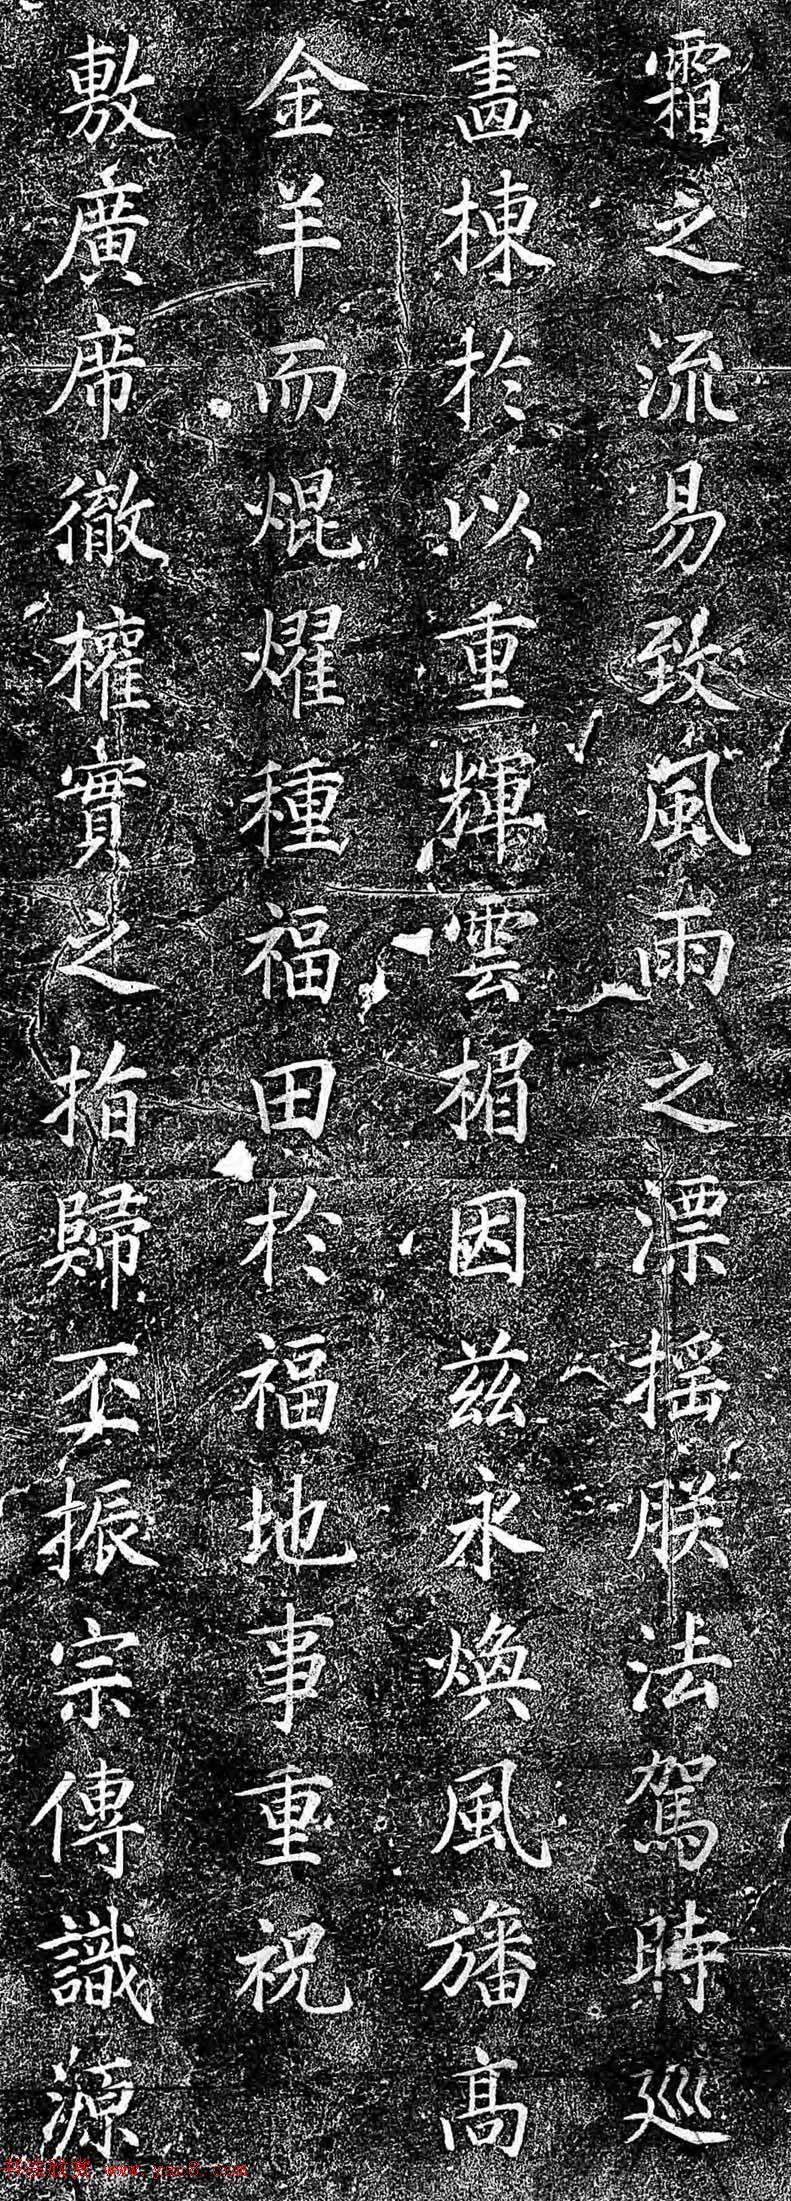 霜之流易致風雨之漂摇朕法駕時巡
畫棟於以重輝雲楣因兹永煥風旛高
金羊而焜燿種福田於福地事重祝
敷廣席徹權實之指歸丕振宗傳識源
书法欣赏 www.yac8.com